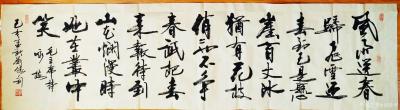 風雨送春
歸飛雪迎
春到已是懸
崖百丈冰
猶有花枝
俏也不爭
春祇把春
來報待到
山花爛漫時
她在叢中
笑
毛主席詩
詠梅